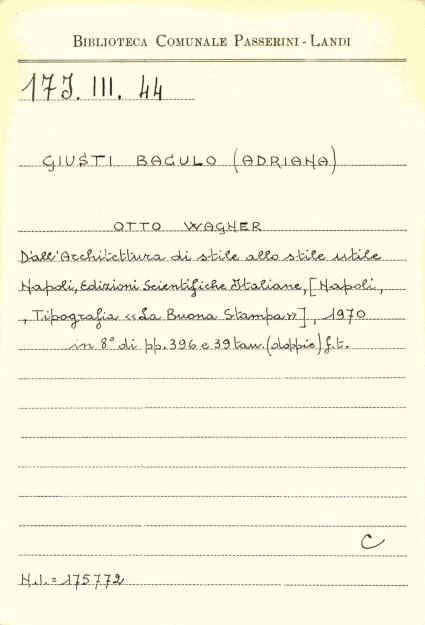 BIBLIOTECA COMUNALE PASSERINI - LANDI
17J. III. 44
GIUSTI BAGULO (ADRIANA)
OTTO WAGNER
Dall'Architettura di stile allo stile utile
Napoli, Edizioni Scientifiche Italiane, [Napoli,
, Tipografia «La Buona Stampa»], 1970
in 8° di pp. 396 e 39 tav. (doppie) f.t.
C
N.I. = 175772